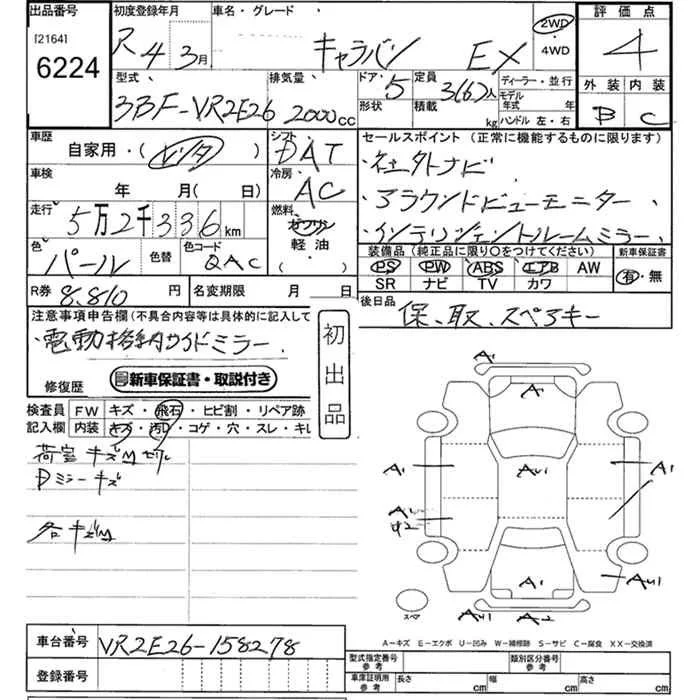 出品番号
[2164]
6224
初度登録年月
R 4 年 3月
車名・グレード
キャラバン EX
2WD
・
4WD
評価点
4
外装 内装
B C
型式
3BF-VR2E26
排気量
2000cc
ドア・ 5
形状
定員 3(6)人
積載 kg
ディーラー・並行
モデル
年式 年
ハンドル 左・右
車歴
自家用・(レンタ)
シフト
DAT
セールスポイント (正常に機能するものに限ります)
・社外ナビ
・アラウンドビューモニター
・インテリジェントルームミラー
車検
年 月( 日)
冷房
AC
走行
5万2千336km
燃料
ガソリン
軽油
( )
色
パール
色替
色コード
QAC
装備品 (純正品に限り○をつけてください)
PS PW ABS エアB AW
SR ナビ TV カワ
新車保証書
有・無
R券 8,810円
名変期限 月 日
後日品
保、取、スペアキー
注意事項申告欄(不具合内容等は具体的に記入して
・電動格納サイドミラー
初出品
修復歴
新車保証書・取説付き
検査員
記入欄
FW キズ・飛石・ヒビ割・リペア跡
内装 キズ・汚レ・コゲ・穴・スレ・キレ
荷室キズM
Dミラーキズ
各キズM
A1
A1
AU1
A1
A1
A1
AU1
A1
AU1
A2
スペア
A－キズ E－エクボ U－凹み W－補修跡 S－サビ C－腐食 XX－交換済
車台番号
VR2E26-158278
登録番号
型式指定番号
参考
類別区分番号
参考
車庫証明用
参考
長さ cm
幅 cm
高さ cm